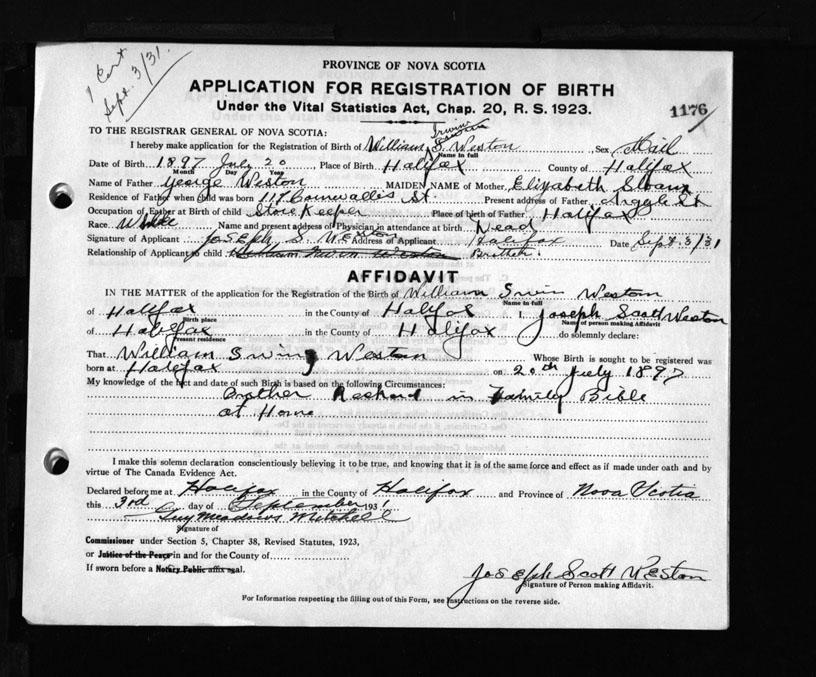 1 Cert
Sept. 3/31.
PROVINCE OF NOVA SCOTIA
APPLICATION FOR REGISTRATION OF BIRTH
Under the Vital Statistics Act, Chap. 20, R. S. 1923.
1176
TO THE REGISTRAR GENERAL OF NOVA SCOTIA:
Irwin
I hereby make application for the Registration of Birth of William S. Weston Sex Mail
Name in full
Date of Birth 1897 July 20 Place of Birth Halifax County of Halifax
Month Day Year
Name of Father George Weston MAIDEN NAME of Mother Elizabeth
Residence of Father when child was born 117 Cornwallis St. Present address of Father Argyle St
Occupation of Father at Birth of child Store Keeper Place of birth of Father Halifax
Race White Name and present address of Physician in attendance at birth Dead
Signature of Applicant JOSEPH S. WESTON Address of Applicant Halifax Date Sept. 3/31
Relationship of Applicant to child William Irwin Weston Brother.
AFFIDAVIT
IN THE MATTER of the application for the Registration of the Birth of William Irwin Weston
Name in full
of Halifax in the County of Halifax I, Joseph Scott Weston
Birth place Name of person making Affidavit
of Halifax in the County of Halifax do solemnly declare:
Present residence
That William Irwing Weston Whose Birth is sought to be registered was
born at Halifax on 20th July 1897
My knowledge of the fact and date of such Birth is based on the following Circumstances:
Brother Reckord in Family Bible
at Home
I make this solemn declaration conscientiously believing it to be true, and knowing that it is of the same force and effect as if made under oath and by
virtue of The Canada Evidence Act.
Declared before me at Halifax in the County of Halifax and Province of Nova Scotia
this 3rd day of September 1931
Guy Meadows Mitchell
Signature of
Commissioner under Section 5, Chapter 38, Revised Statutes, 1923,
or Justice of the Peace in and for the County of
If sworn before a Notary Public affix seal.
Joseph Scott Weston
Signature of Person making Affidavit.
For Information respecting the filling out of this Form, see Instructions on the reverse side.